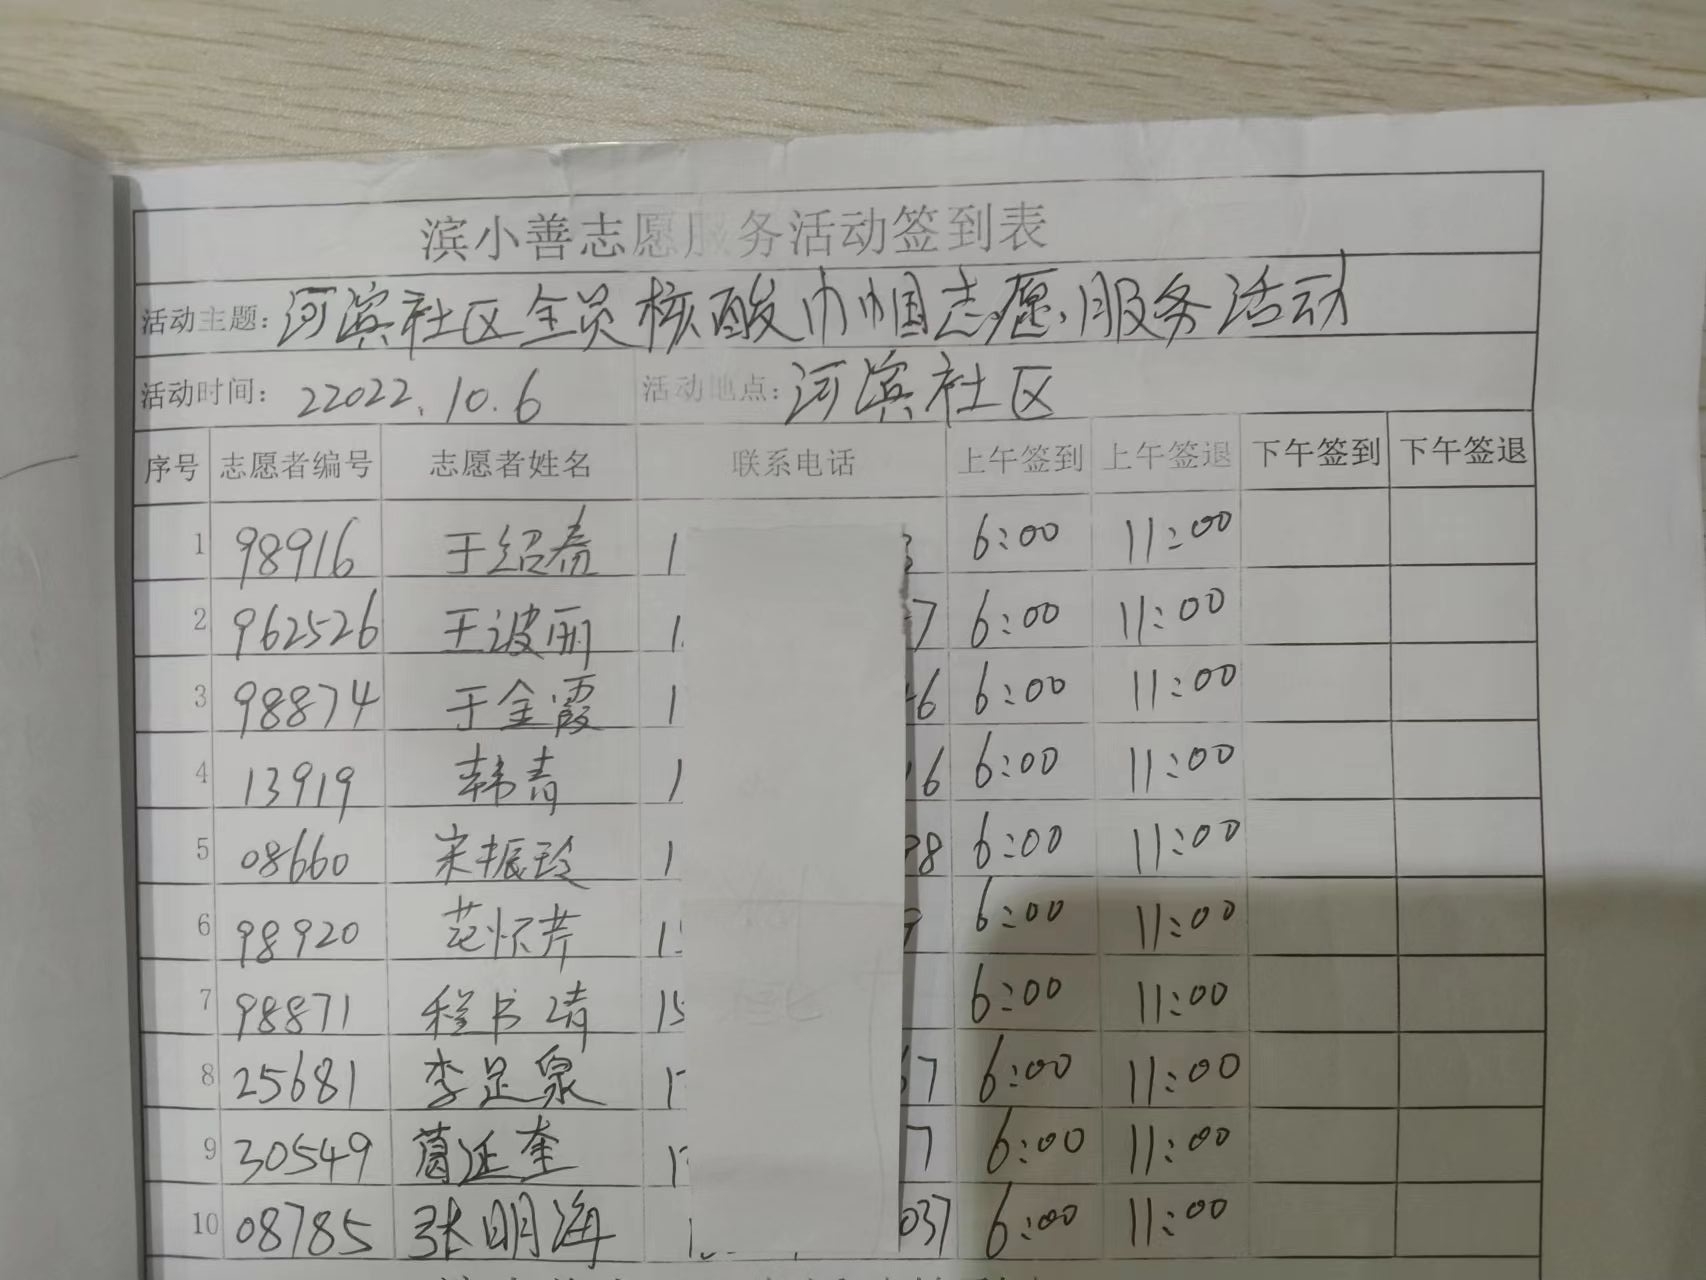 滨小善志愿服务活动签到表
活动主题: 河滨社区全员核酸巾帼志愿服务活动
活动时间: 22022.10.6 活动地点: 河滨社区
序号 志愿者编号 志愿者姓名 联系电话 上午签到 上午签退 下午签到 下午签退
1 98916 于绍春 1 3 6:00 11:00
2 962526 王波丽 1 7 6:00 11:00
3 98874 于金霞 1 46 6:00 11:00
4 13919 韩青 1 16 6:00 11:00
5 08660 宋振玲 1 98 6:00 11:00
6 98920 范怀芹 1 9 6:00 11:00
7 98871 程书靖 15 6:00 11:00
8 25681 李足泉 1 67 6:00 11:00
9 30549 葛延奎 1 7 6:00 11:00
10 08785 张明海 1 037 6:00 11:00